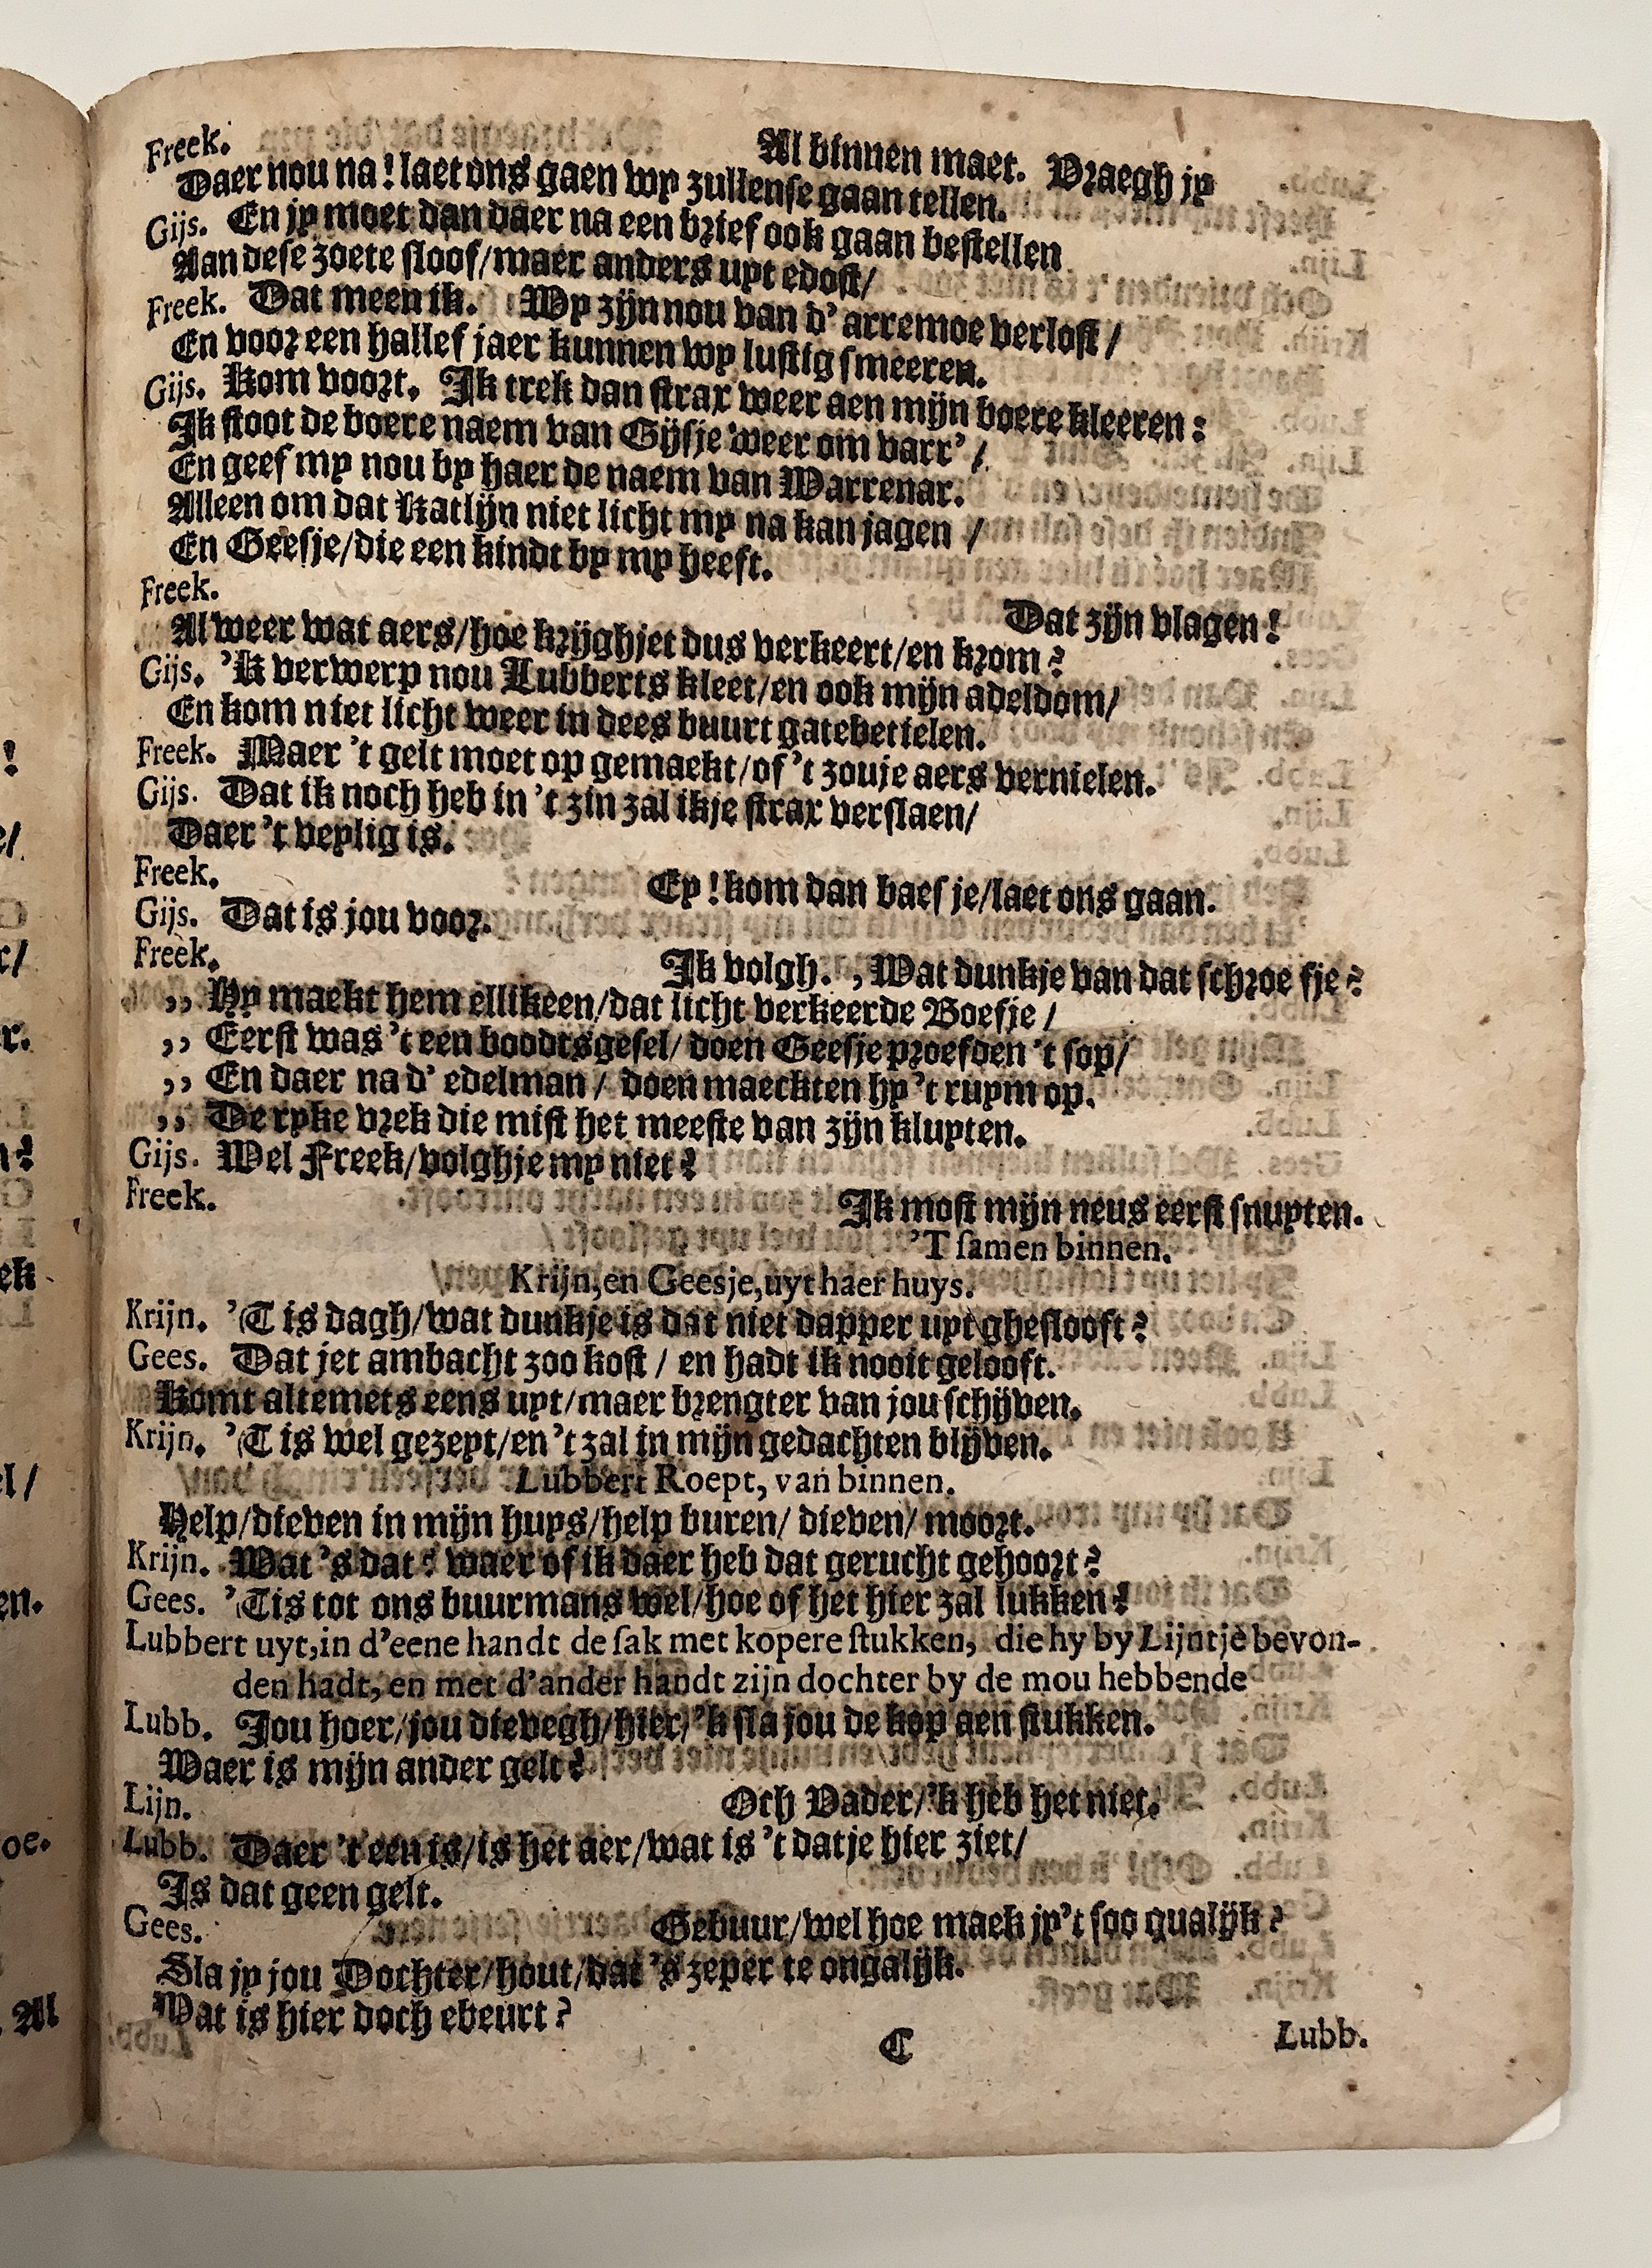 Freek. Al binnen maet. Vraegh jy
Daer nou na! laet ons gaen wy zullense gaan tellen.
Gijs. En jy moet dan daer na een brief ook gaan bestellen
Aan dese zoete sloof/maer anders uyt edost/
Freek. Dat meen ik. Wy zijn nou van d'arremoe verlost/
En voor een hallef jaer kunnen wy lustig smeeren.
Gijs. Kom voort. Ik trek dan strax weer aen mijn boere kleeren:
Ik stoot de boere naem van Gijsje weer om varr'/
En geef my nou by haer de naem van Warrenar.
Alleen om dat Katlijn niet licht my na kan jagen/
En Geesje/die een kindt by my heeft.
Freek. Dat zijn vlagen!
Al weer wat aers/hoe krijghjet dus verkeert/en krom?
Gijs. 'K verwerp nou Lubberts kleet/en ook mijn adeldom/
En kom niet licht weer in dees buurt gatebetielen.
Freek. Maer 't gelt moet op gemaekt/of 't zouje aers vernielen.
Gijs. Dat ik noch heb in 't zin zal ikje strax verslaen/
Daer 't veylig is.
Freek. Ey! kom dan baesje/laet ons gaan.
Gijs. Dat is jou voor.
Freek. Ik volgh. ,Wat dunkje van dat schroefje?
,, Hy maekt hem ellikeen/dat licht verkeerde Boefje/
,, Eerst was 't een boodtsgesel/doen Geesje proefden 't sop/
,, En daer na d'edelman/doen maeckten hy 't ruym op.
,, De ryke vrek die mist het meeste van zijn kluyten.
Gijs. Wel Freek/volghje my niet?
Freek. Ik most mijn neus eerst snuyten.
'T samen binnen.
Krijn, en Geesje, uyt haer huys.
Krijn. 'T is dagh/wat dunkje is dat niet dapper uyt ghesloooft?
Gees. Dat jet ambacht zoo kost/en hadt ik nooit gelooft.
Komt altemets eens uyt/maer brengter van jou schijven.
Krijn. 'T is wel gezeyt/en 't zal in mijn gedachten blijven.
Lubbert Roept, van binnen.
Help/dieven in mijn huys/help buren/dieven/moort.
Krijn. Wat 's dat? waer of ik daer heb dat gerucht gehoort?
Gees. 'Tis tot ons buurmans wel/hoe of het hier zal lukken!
Lubbert uyt, in d'eene handt de sak met kopere stukken, die hy by Lijntje bevon-
den hadt, en met d'ander handt zijn dochter by de mou hebbende
Lubb. Jou hoer/jou dievegh/hier/'k sla jou de kop aen stukken.
Waer is mijn ander gelt?
Lijn. Och Vader/'k heb het niet.
Lubb. Daer 't een is/is het aer/wat is 't datje hier ziet/
Is dat geen gelt.
Gees. Gebuur/wel hoe maek jy't soo qualijk?
Sla jy jou Dochter/hout/dat 's zeper te ongalijk.
Wat is hier doch ebeurt?
C Lubb.